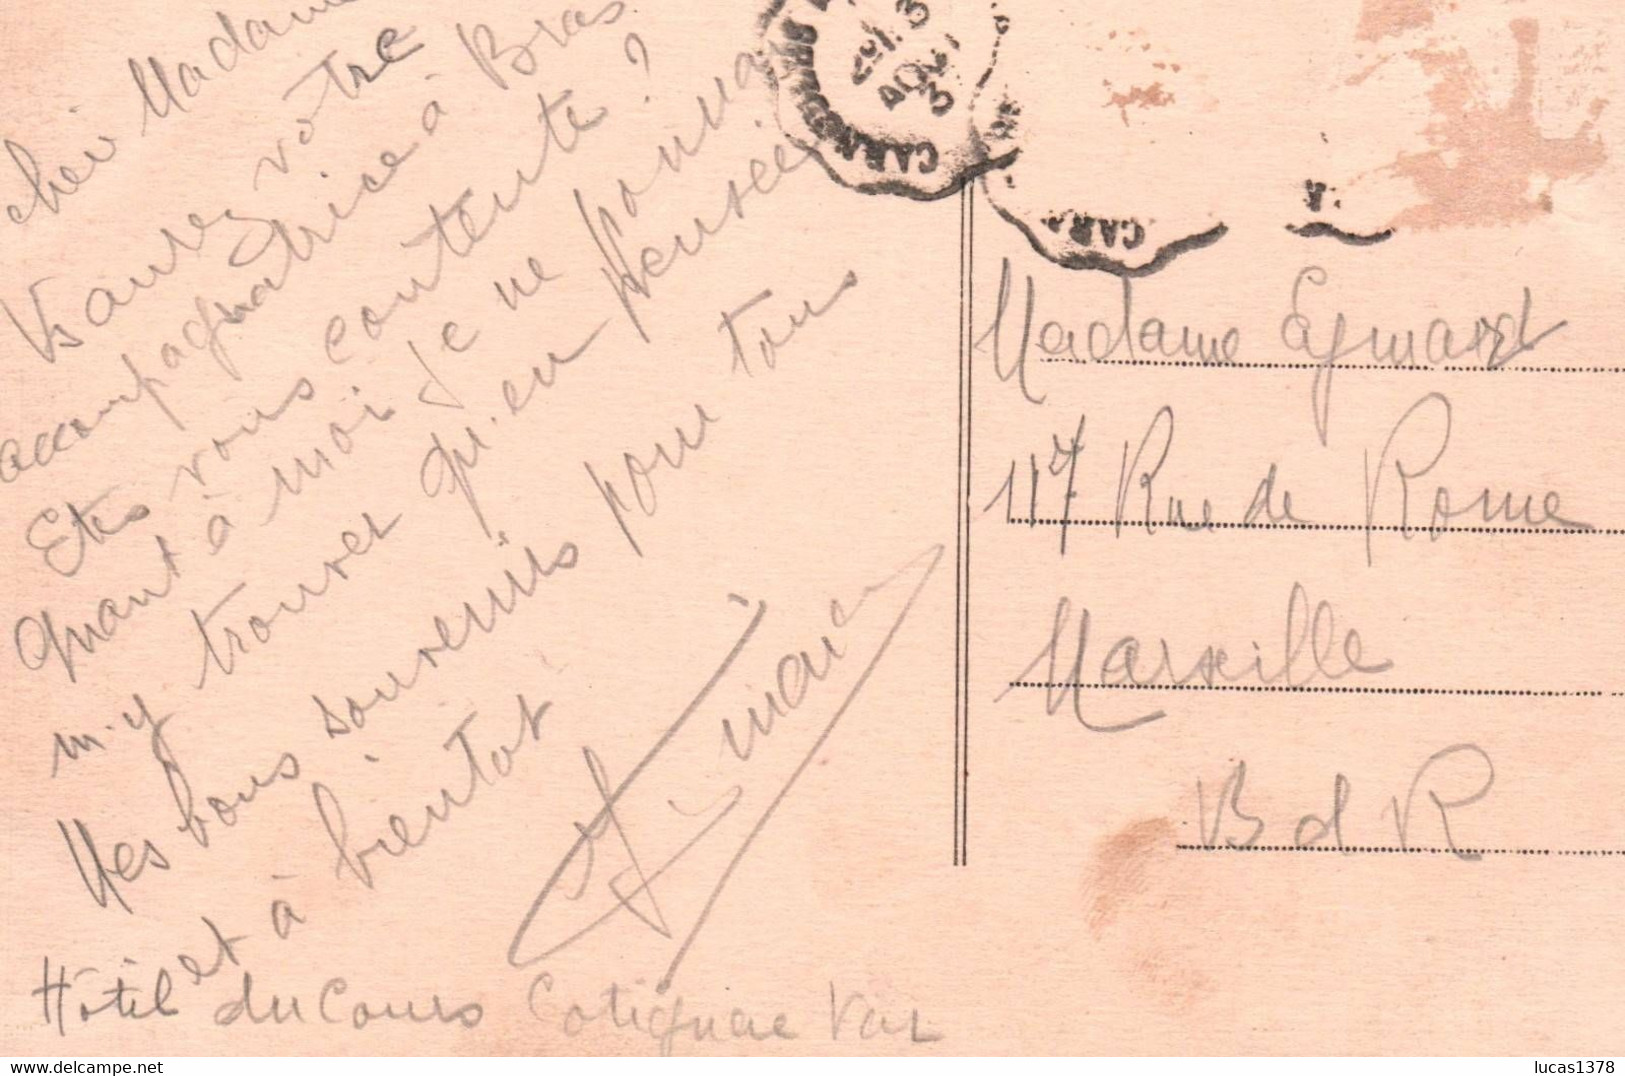 cher Madame
Vs aurez votre
accompagnatrice à Bras
Etes vous contente ?
Quant à moi je ne pourra
m'y trouver qu'en pensée
Mes bons souvenirs pour tous
et à bientot
Hôtel du Cours Cotignac Var
CARNOULES
AOUT
3
CAR
Madame Eymard
117 Rue de Rome
Marseille
B d R
lucas1378